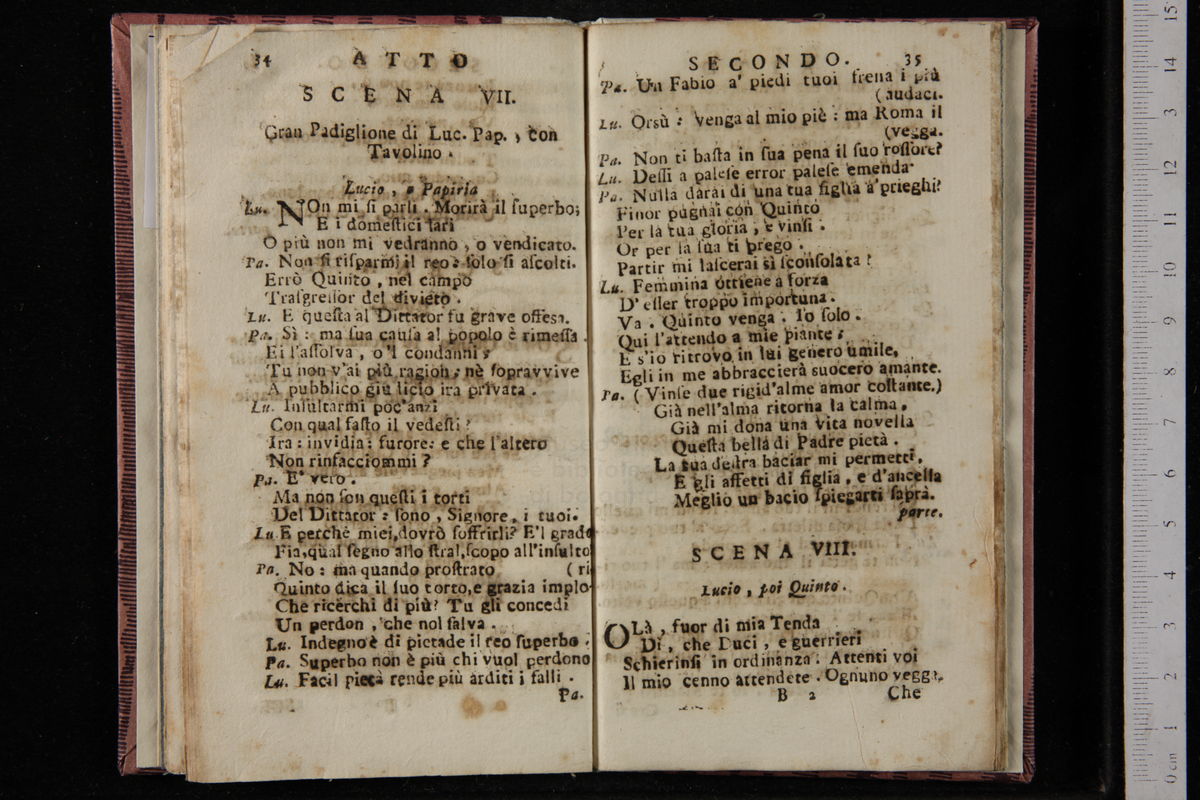 34 ATTO
SCENA VII.
Gran Padiglione di Luc. Pap., con
Tavolino.
Lucio, e Papiria
Lu. NOn mi si parli. Morirà il superbo;
E i domestici lari
O più non mi vedranno, o vendicato.
Pa. Non si risparmj il reo: solo si ascolti.
Errò Quinto, nel campo
Trasgressor del divieto.
Lu. E questa al Dittator fu grave offesa.
Pa. Sì: ma sua causa al popolo è rimessa.
Ei l'assolva, o'l condanni;
Tu non v'ai più ragion; nè sopravvive
A pubblico giudicio ira privata.
Lu. Insultarmi poc'anzi
Con qual fasto il vedesti?
Ira: invidia: furore: e che l'altero
Non rinfacciommi?
Pa. E' vero.
Ma non son questi i torti
Del Dittator: sono, Signore, i tuoi.
Lu. E perchè miei, dovrò soffrirli? E'l grado
Fia, qual segno allo stral, scopo all'insulto
Pa. No: ma quando prostrato (ri
Quinto dica il suo torto, e grazia implo-
Che ricerchi di più? Tu gli concedi
Un perdon, che nol salva.
Lu. Indegno è di pietade il reo superbo.
Pa. Superbo non è più chi vuol perdono
Lu. Facil pietà rende più arditi i falli.
Pa.
SECONDO. 35
Pa. Un Fabio a' piedi tuoi frena i più
(audaci.
Lu. Orsù: venga al mio piè: ma Roma il
(vegga.
Pa. Non ti basta in sua pena il suo rossore?
Lu. Dessi a palese error palese emenda.
Pa. Nulla darai di una tua figlia a' prieghi?
Finor pugnai con Quinto
Per la tua gloria, e vinsi.
Or per la sua ti prego.
Partir mi lascerai sì sconsolata?
Lu. Femmina ottiene a forza
D'esser troppo importuna.
Va. Quinto venga. Io solo.
Qui l'attendo a mie piante;
E s'io ritrovo in lui genero umile,
Egli in me abbraccierà suocero amante.
Pa. (Vinse due rigid'alme amor costante.)
Già nell'alma ritorna la calma,
Già mi dona una vita novella
Questa bella di Padre pietà.
La tua destra baciar mi permetti,
E gli affetti di figlia, e d'ancella
Meglio un bacio spiegarti saprà.
parte.
SCENA VIII.
Lucio, poi Quinto.
OLà, fuor di mia Tenda
Di, che Duci, e guerrieri
Schierinsi in ordinanza. Attenti voi
Il mio cenno attendete. Ognuno vegga,
B 2 Che